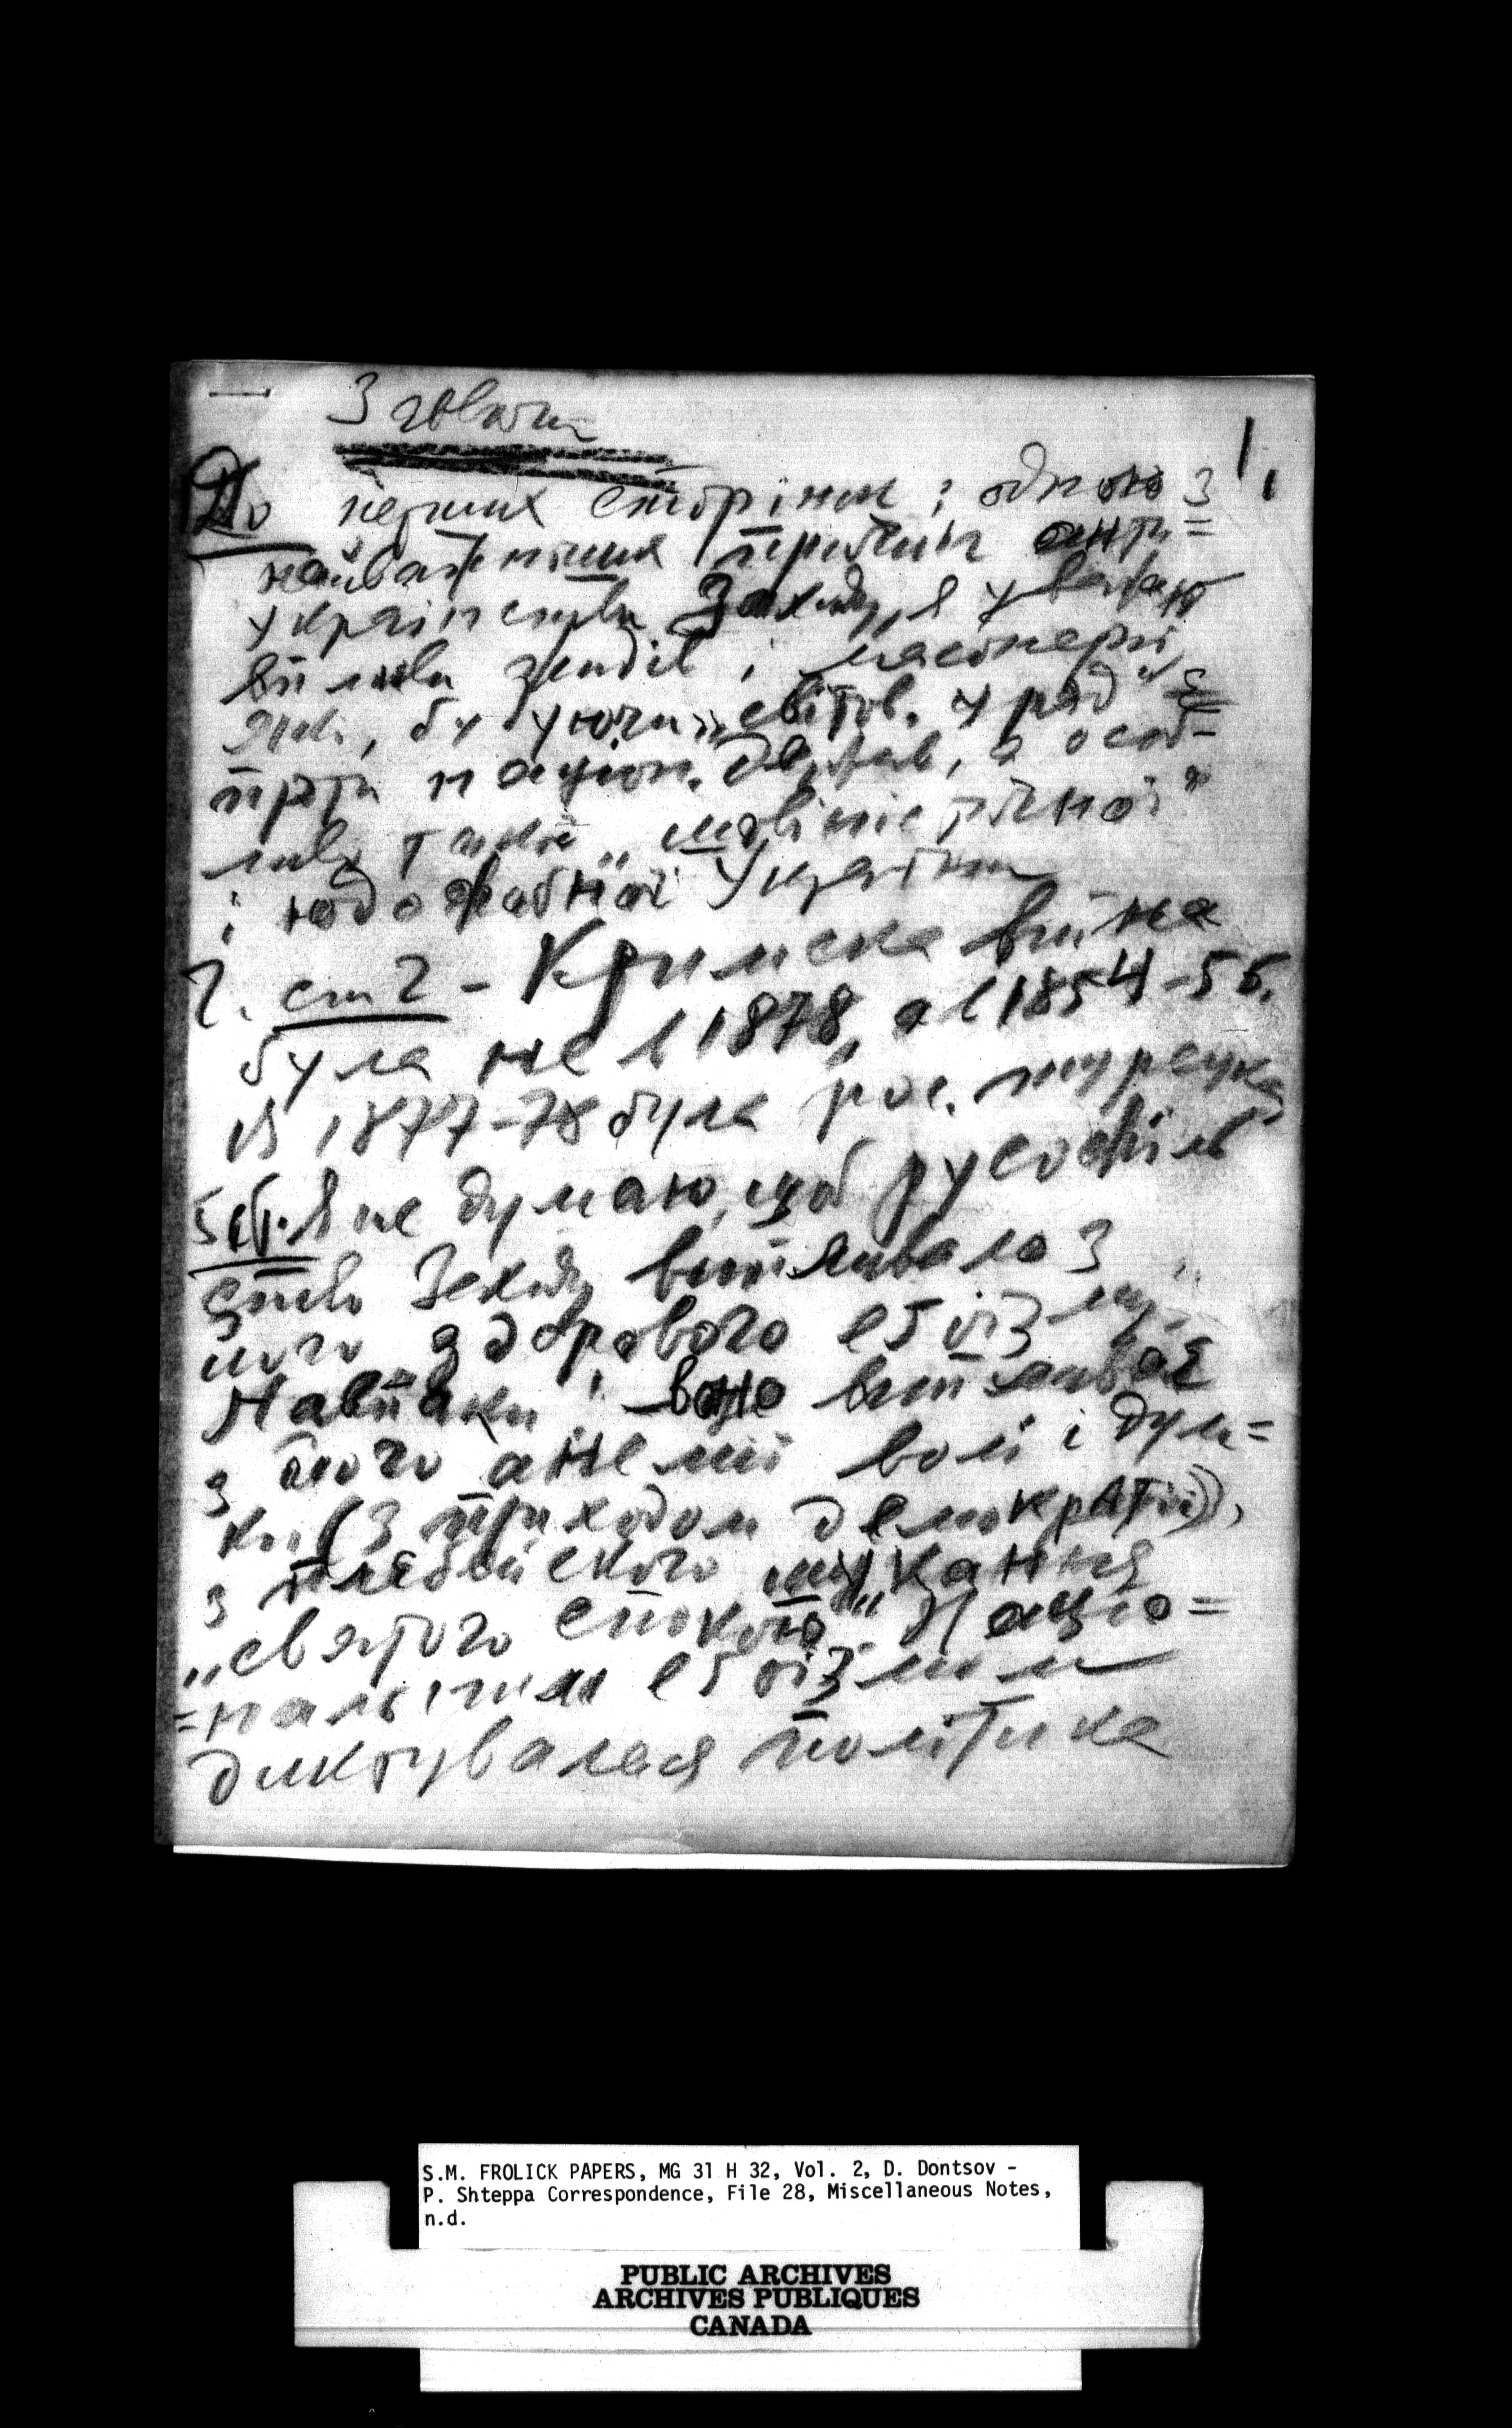 Зуваги
1.
До перших сторінок: одною з
найважнійших причин анти=
українства Заходу, я уважаю
вплив жидів і масонерії,
яка, будуючи „світов. уряд“ є
проти націон. держав, а особ-
ливо такої „шовіністичної“
і юдофобної України
2. ст 2 - Кримска війна
була не в 1878, а в 1854-56.
В 1877-78 була рос. турецка
5 ст. Я не думаю, щоб русофіль
ство Заходу випливало з
його здорового еґоізму,
Навпаки: воно випливає
з його анемії волі і дум=
ки (з приходом демократії),
з плебейского шукання
„святого спокою“ Націо=
=нальним еґоізмом
диктувалася політика
S.M. FROLICK PAPERS, MG 31 H 32, Vol. 2, D. Dontsov -
P. Shteppa Correspondence, File 28, Miscellaneous Notes,
n.d.
PUBLIC ARCHIVES
ARCHIVES PUBLIQUES
CANADA